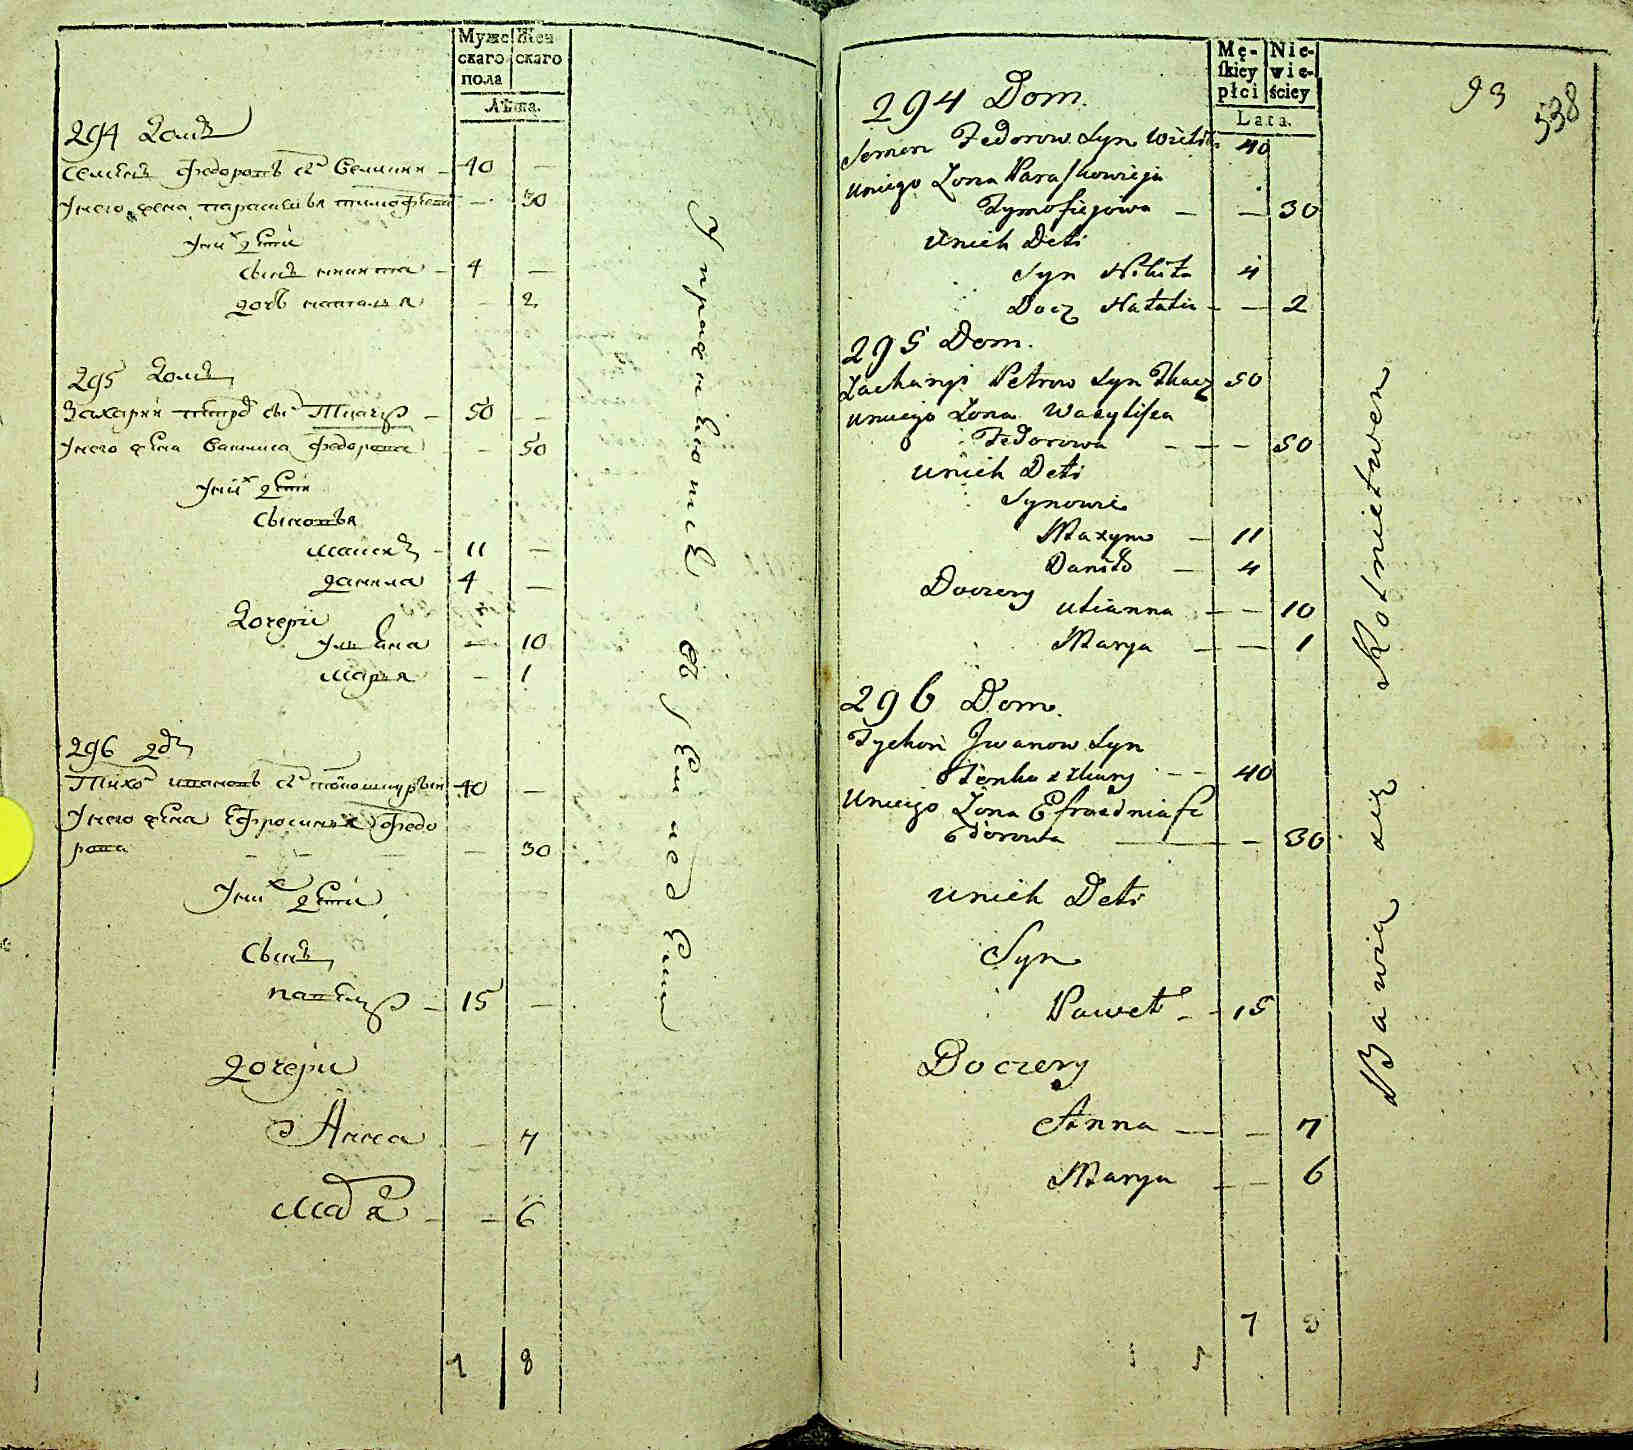 Мужс
скаго
пола
Жен
скаго
Лѣта.
294 Домъ
Семенъ Федоровъ сн
40 —
У него жена Параскевья Тимофѣева — 30
У них дѣти
Сынъ Никита — 4 —
дочь Наталья — 2
295 Домъ
Захарии Петров сн Ткачъ — 50 —
У него жена Василиса Федорова — 50
У них дѣти
Сыновья
Максимъ — 11 —
Данила 4 —
Дочери
Ульяна — 10
Марья — 1
296 д
Тихо Ивановъ сн
40 —
У него жена Ефросинья Федо
рова — 30
У них дѣти
Сынъ
Павелъ — 15 —
Дочери
Анна — 7
Марья — — 6
7 8
Упражняются в земледѣлии
Mę-
skiey
płci
Nie-
wie-
ściey
Lata.
93
538
294 Dom.
Semen Fedorow Syn 40
Uniego Zona Paraskowieja
Tymofiejowa — — 30
Unich Deti
Syn Nikita 4
Docz Natalia — — 2
295 Dom.
Zacharyi Petrow Syn Tkacz 50
Uniego Zona Wasylisa
Fedorowa — — — 50
Unich Deti
Synowie
Maxym — 11
Daniło — 4
Doczery Ulianna — — 10
Marya — — 1
296 Dom.
Tychon Jwanow Syn
— — 40
Uniego Zona Efrosinia Fe
dorowa — — 30
Unich Deti
Syn
Paweł — — 15
Doczery
Anna — — 7
Marya — — 6
7 8
Bawią się Rolnictwem